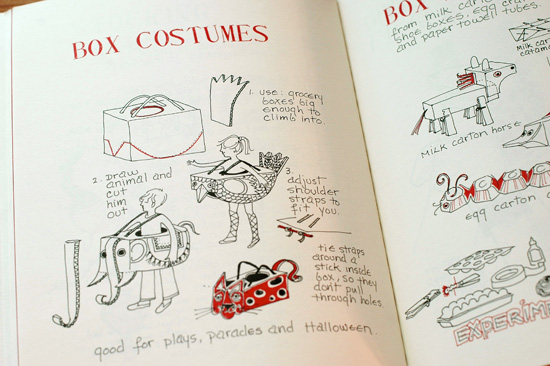 BOX COSTUMES
1. use: grocery
boxes big
enough to
climb into.
2. Draw
animal and
cut
him
out
3.
adjust
shoulder
straps to
fit you.
tie straps
around a
stick inside
box, so they
don't pull
through holes.
good for plays, parades and Halloween.
BOX
from milk carto
shoe boxes, egg cra
and paper towel tubes.
Milk cart
catama
Milk carton horse
egg carton
EXPERIME